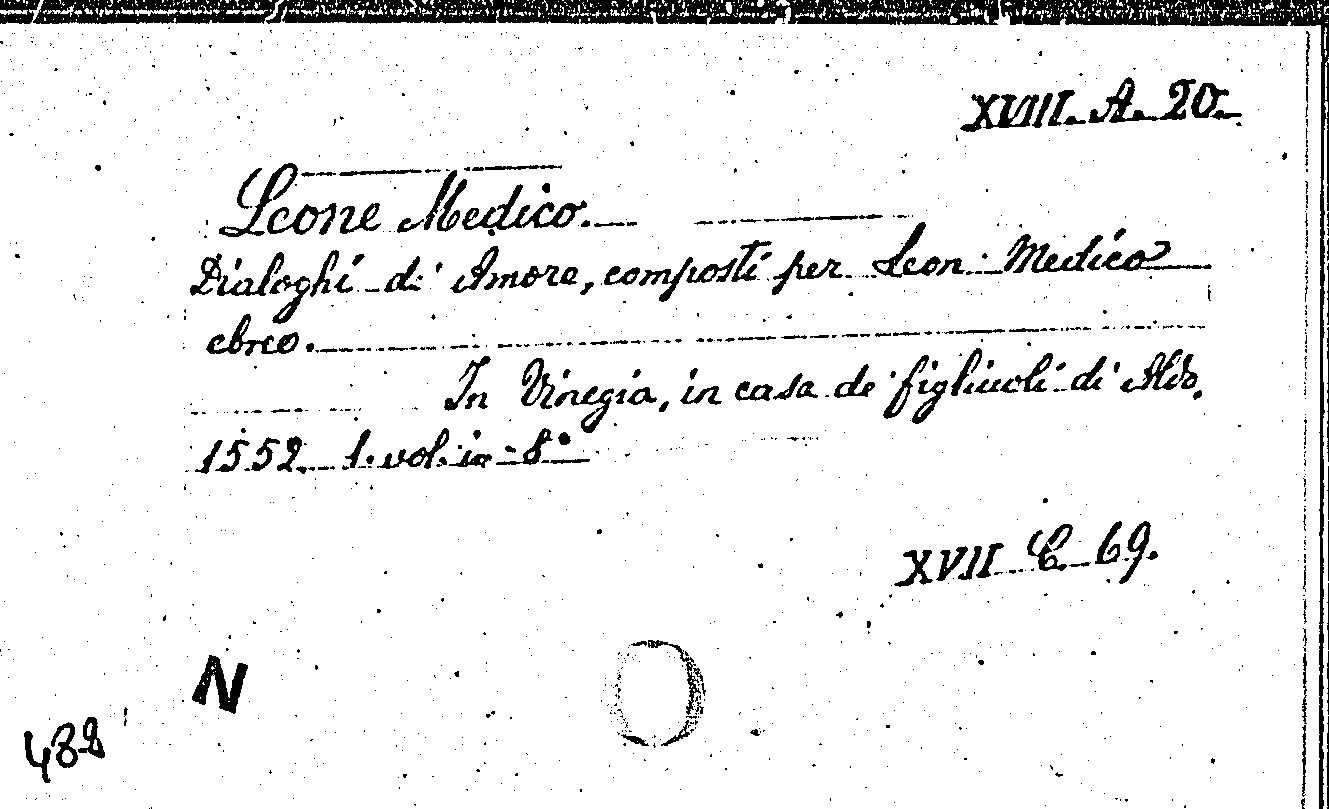 XVIII. A. 20.
Leone Medico.
Dialoghi di Amore, composti per Leon Medico
ebreo.
In Vinegia, in casa de figliuoli di Aldo.
1552 1. vol. in-8°
XVII C 69.
N
488